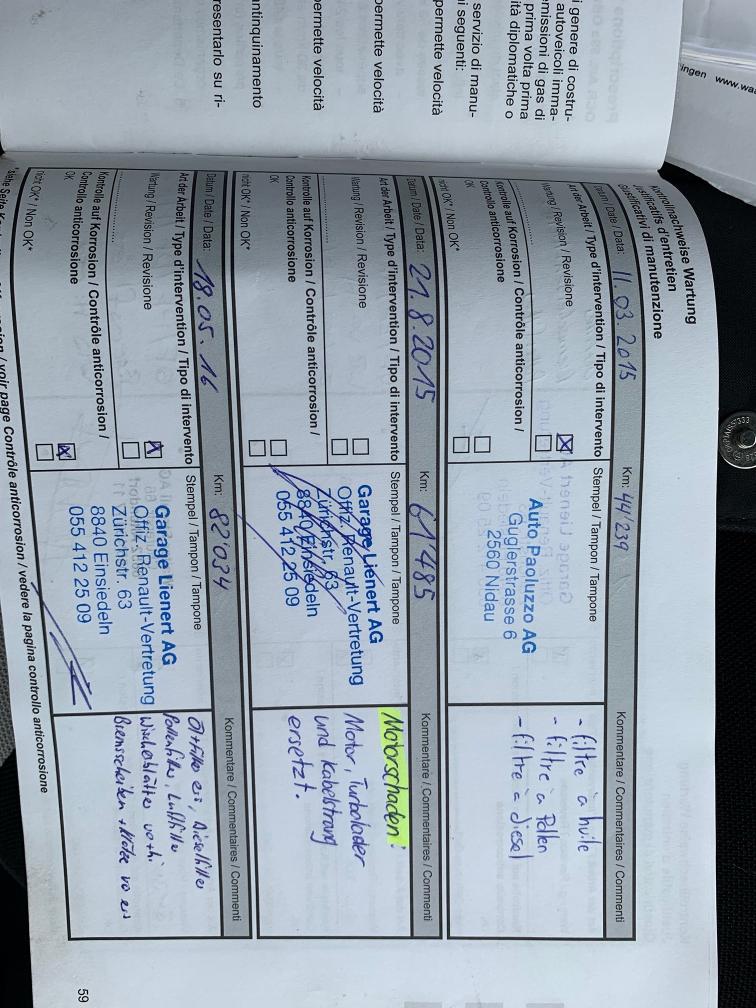 i genere di costru-
autoveicoli imma-
missioni di gas di
prima volta prima
ità diplomatiche o
servizio di manu-
i seguenti:
permette velocità
permette velocità
permette velocità
antinquinamento
resentarlo su ri-
ingen www.wa
Kontrollnachweise Wartung
Justificatifs d'entretien
Giustificativi di manutenzione
Datum / Date / Data: 11.03.2015 Km: 44'239 Kommentare / Commentaires / Commenti
Art der Arbeit / Type d'intervention / Tipo di intervento Stempel / Tampon / Tampone
Wartung / Revision / Revisione
Kontrolle auf Korrosion / Contrôle anticorrosion /
Controllo anticorrosione
OK
nicht OK* / Non OK*
Auto Paoluzzo AG
Guglerstrasse 6
2560 Nidau
- filtre à huile
- filtre à Pollen
- filtre à diesel
Datum / Date / Data: 21.8.2015 Km: 61'485 Kommentare / Commentaires / Commenti
Art der Arbeit / Type d'intervention / Tipo di intervento Stempel / Tampon / Tampone
Wartung / Revision / Revisione
Kontrolle auf Korrosion / Contrôle anticorrosion /
Controllo anticorrosione
OK
nicht OK* / Non OK*
Garage Lienert AG
Offiz. Renault-Vertretung
Zürichstr. 63
8840 Einsiedeln
055 412 25 09
Motorschaden:
Motor, Turbolader
und Kabelstrang
ersetzt.
Datum / Date / Data: 18.05.16 Km: 82'034 Kommentare / Commentaires / Commenti
Art der Arbeit / Type d'intervention / Tipo di intervento Stempel / Tampon / Tampone
Wartung / Revision / Revisione
Kontrolle auf Korrosion / Contrôle anticorrosion /
Controllo anticorrosione
OK
nicht OK* / Non OK*
Garage Lienert AG
Offiz. Renault-Vertretung
Zürichstr. 63
8840 Einsiedeln
055 412 25 09
Ölfilter Dieselfilter
Pollenfilter, Luftfilter
Wischerblätter
Bremsscheiben
voir page Contrôle anticorrosion / vedere la pagina controllo anticorrosione
59